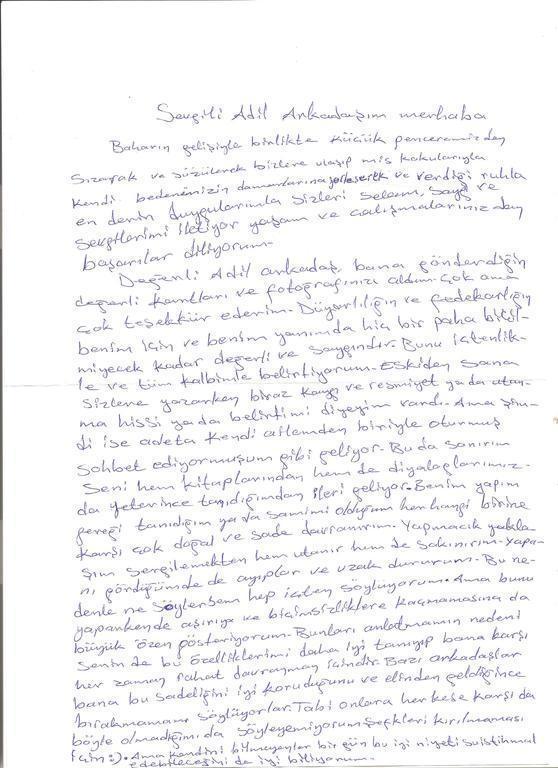 Sevgili Adil Arkadaşım merhaba
Baharın gelişiyle birlikte küçük penceremizden
sızarak ve süzülerek bizlere ulaşıp mis kokularıyla
kendi bedenemizin damarlarına yerleşerek ve verdiği ruhla
en derin duygularımla sizleri selam, saygı ve
sevgilerimi iletiyor yaşam ve çalışmalarınızdan
başarılar diliyorum.
Değerli Adil arkadaş, bana gönderdiğin
değerli kartları ve fotoğrafınızı aldım. Çok ama
çok teşekkür ederim. Duyarlılığın ve fedekarlığın
benim için ve benim yanımda hiç bir paha biçil-
miyecek kadar değerli ve saygındır. Bunu içtenlik-
le ve tüm kalbimle belirtiyorum. Eskiden sana
sizlere yazarken biraz kaygı ve resmiyet ya da utan-
ma hissi ya da belirtimi diyeyim vardı. Ama şim-
di ise adeta kendi ailemden biriyle oturmuş
sohbet ediyormuşum gibi geliyor. Bu da sanırım
seni hem kitaplarından hem de diyalaglarımız-
da yeterince tanıdığımdan ileri geliyor. Benim yapım
gereği tanıdığım ya da samimi olduğum her hangi birine
karşı çok doğal ve sade davranırım. Yapmacık yakla-
şım sergilemekten hem utanır hem de sakınırım. Yapa-
nı gördüğümde de ayıplar ve uzak dururum. Bu ne-
denle ne söylersem hep içten söylüyorum. Ama bunu
yaparkende aşırıya ve biçimsizliklere kaçmamasına da
büyük özen gösteriyorum. Bunları anlatmamın nedeni
senin de bu özelliklerimi daha iyi tanıyıp bana karşı
her zaman rahat davranman içindir. Bazı arkadaşlar
bana bu sadeliğini iyi koruduğunu ve elinden geldiğince
bırakmamamı söylüyorlar. Tabi onlara herkese karşı da
böyle olmadığımı da söyleyemiyorum şevkleri kırılmaması
için :). Ama kendini bilmeyenler bir gün bu iyi niyeti suistimal
edebileceğini de iyi biliyorum.